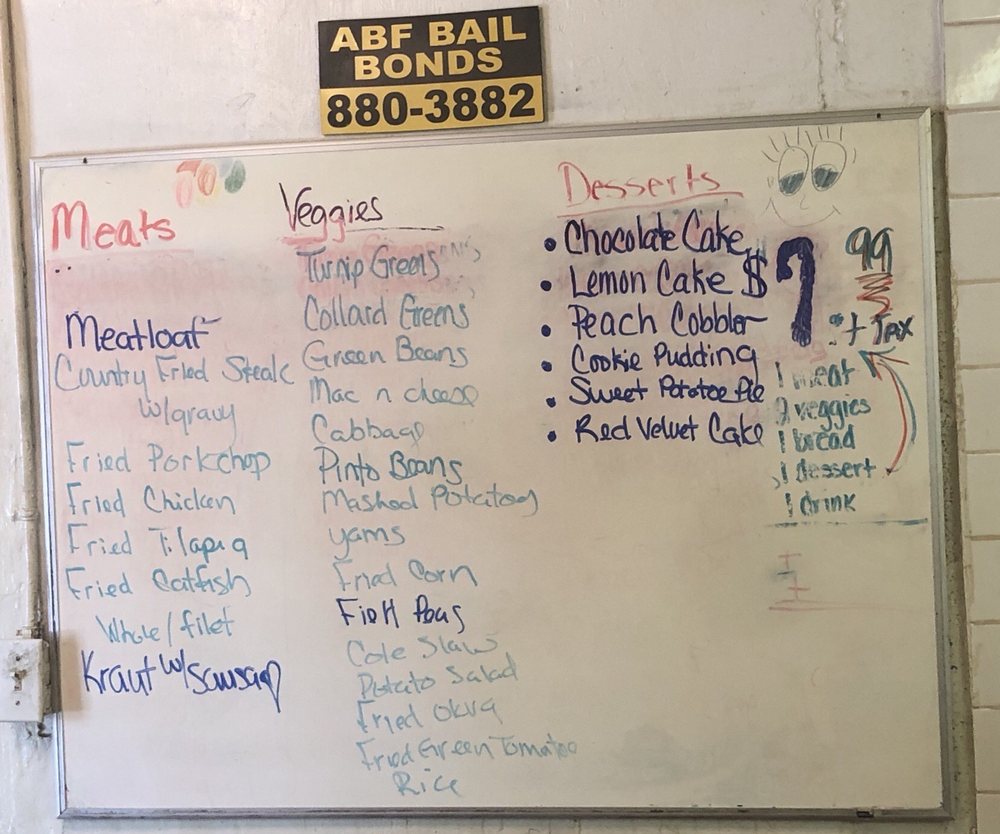 ABF BAIL
BONDS
880-3882
Meats
Meatloaf
Country Fried Steak
w/gravy
Fried Porkchop
Fried Chicken
Fried Tilapia
Fried Catfish
Whole/filet
Kraut w/sausag
Veggies
Turnip Greens
Collard Greens
Green Beans
Mac n cheese
Cabbage
Pinto Beans
Mashed Potatoes
yams
Fried Corn
Field Peas
Cole Slaw
Potato Salad
Fried Okra
Fried Green Tomatoe
Rice
Desserts
• Chocolate Cake
• Lemon Cake
• Peach Cobbler
• Cookie Pudding
• Sweet Potatoe Pie
• Red Velvet Cake
$7 99
+ Tax
1 meat
2 veggies
1 bread
1 dessert
1 drink